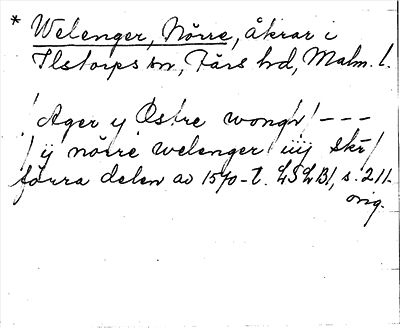 * Welenger, Nörre, åkrar i
Ilstorps sn, Färs hd, Malm. l.
! Ager y Østre wongh / - - -
/ ÿ nörre welenger iiij skr /
förra delen av 1570-t. LSLB1, s. 211.
orig.